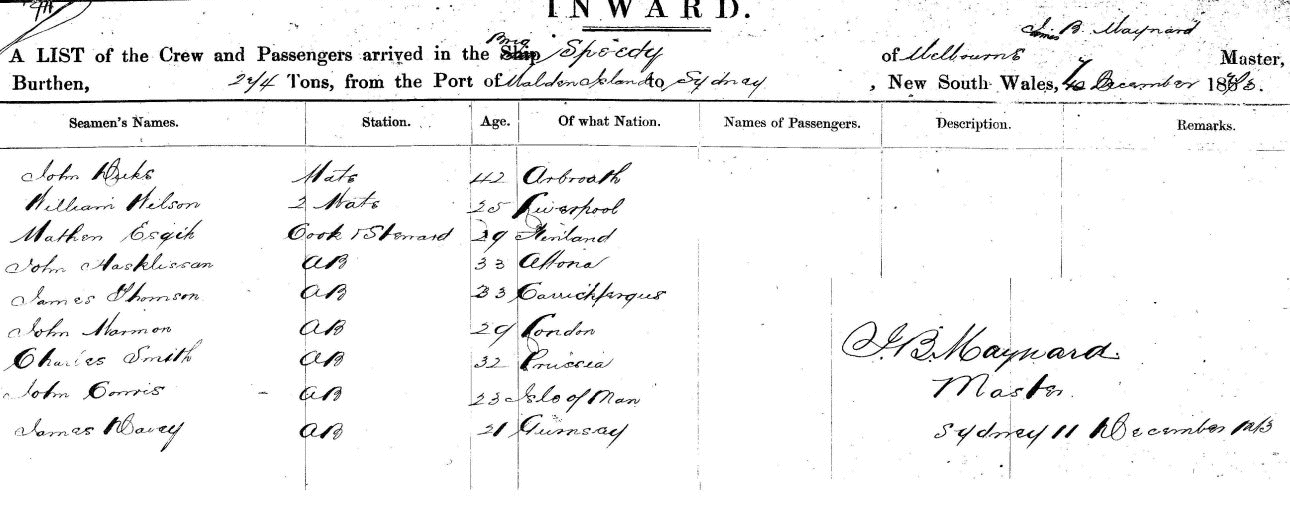 INWARD.
James B. Maynard
A LIST of the Crew and Passengers arrived in the Ship Brig Speedy of Melbourne Master,
Burthen, 244 Tons, from the Port of Malden Island to Sydney, New South Wales, December 18
Seamen's Names. Station. Age. Of what Nation. Names of Passengers. Description. Remarks.
John Mate 42 Arbroath
William Wilson 2 Mate 25 Liverpool
Mathew Cook & Steward 29 Finland
John AB 33 Altona
James Thomson AB 33 Carrickfergus
John Marmon AB 29 London
J. B. Maynard
Charles Smith AB 32 Prussia
Master
John Corris - AB 23 Isle of Man
James Davey AB 21 Gurnsay
Sydney 11 December